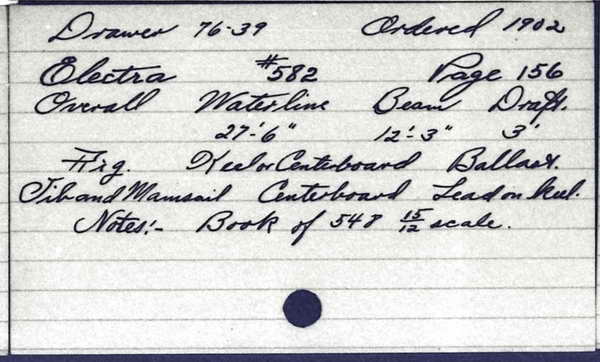 Drawer 76-39 Ordered 1902
Electra #582 Page 156
Overall Waterline Beam Draft.
27'-6" 12'-3" 3'
Fig. Keel or Centerboard Ballast.
Jib and Mainsail Centerboard Lead on keel.
Notes:- Book of 548 15/12 scale.